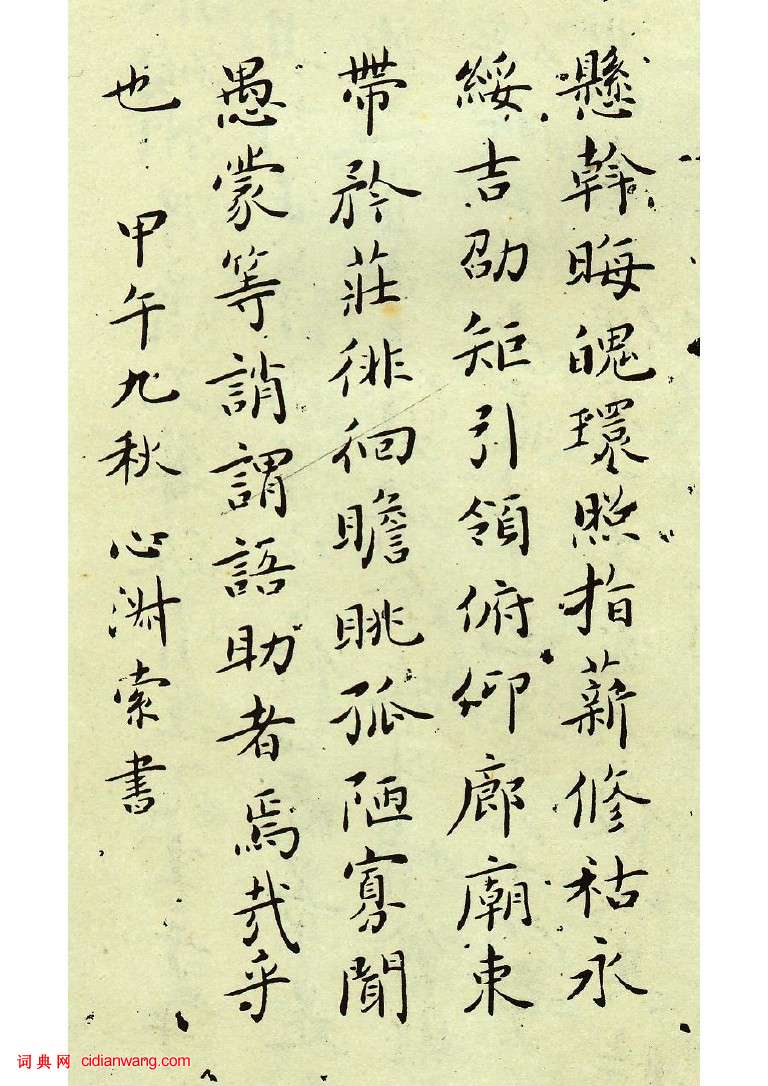 懸斡晦魄環照指薪修祜永
綏吉劭矩引領俯仰廊廟束
帶矜莊徘徊瞻眺孤陋寡聞
愚蒙等誚謂語助者焉哉乎
也 甲午九秋 心淵索書
词典网 cidianwang.com